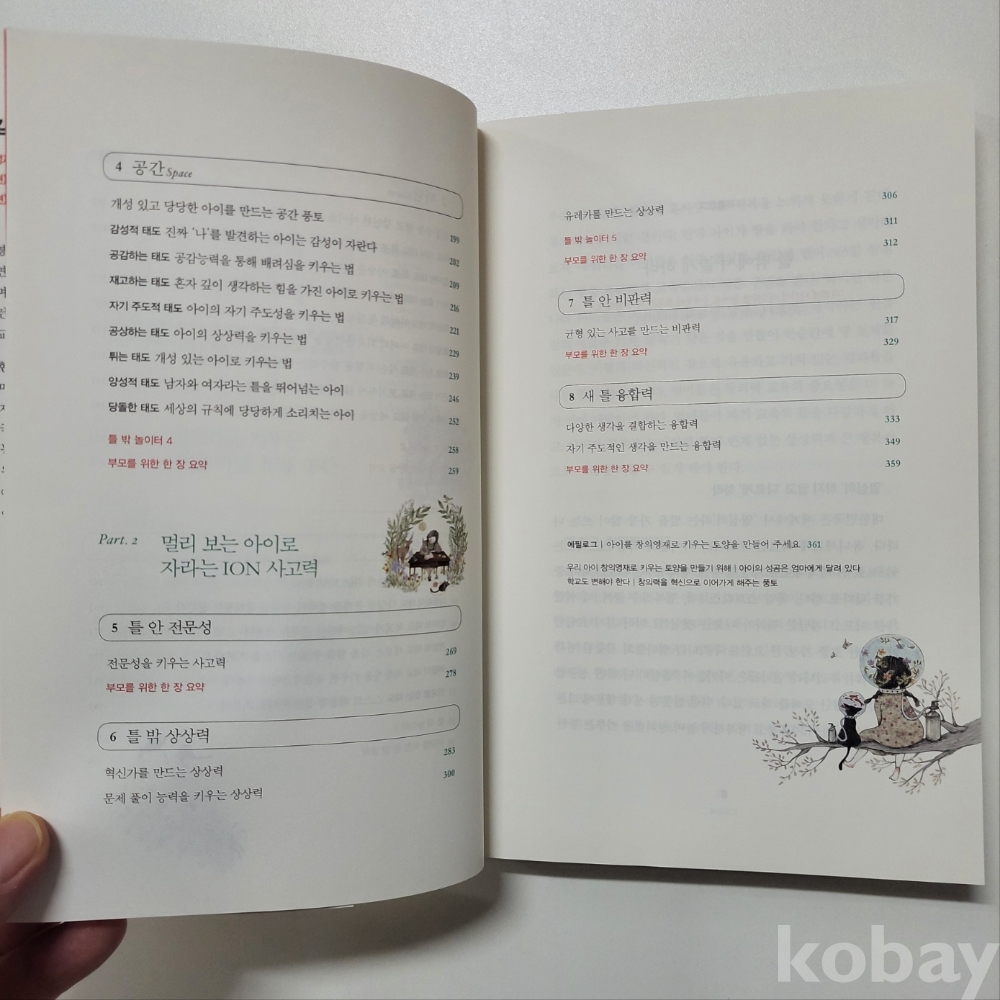 4 공간 Space
개성 있고 당당한 아이를 만드는 공간 풍토 199
감성적 태도 진짜 '나'를 발견하는 아이는 감성이 자란다 202
공감하는 태도 공감능력을 통해 배려심을 키우는 법 209
재고하는 태도 혼자 깊이 생각하는 힘을 가진 아이로 키우는 법 216
자기 주도적 태도 아이의 자기 주도성을 키우는 법 221
공상하는 태도 아이의 상상력을 키우는 법 229
튀는 태도 개성 있는 아이로 키우는 법 239
양성적 태도 남자와 여자라는 틀을 뛰어넘는 아이 246
당돌한 태도 세상의 규칙에 당당하게 소리치는 아이 252
틀 밖 놀이터 4 258
부모를 위한 한 장 요약 259
Part. 2 멀리 보는 아이로
자라는 ION 사고력
5 틀 안 전문성
전문성을 키우는 사고력 269
부모를 위한 한 장 요약 278
6 틀 밖 상상력
혁신가를 만드는 상상력 283
문제 풀이 능력을 키우는 상상력 300
유레카를 만드는 상상력 306
틀 밖 놀이터 5 311
부모를 위한 한 장 요약 312
7 틀 안 비판력
균형 있는 사고를 만드는 비판력 317
부모를 위한 한 장 요약 329
8 새 틀 융합력
다양한 생각을 결합하는 융합력 333
자기 주도적인 생각을 만드는 융합력 349
부모를 위한 한 장 요약 359
에필로그 | 아이를 창의영재로 키우는 토양을 만들어 주세요 361
우리 아이 창의영재로 키우는 토양을 만들기 위해 | 아이의 성공은 엄마에게 달려 있다
학교도 변해야 한다 | 창의력을 혁신으로 이어가게 해주는 풍토
kobay